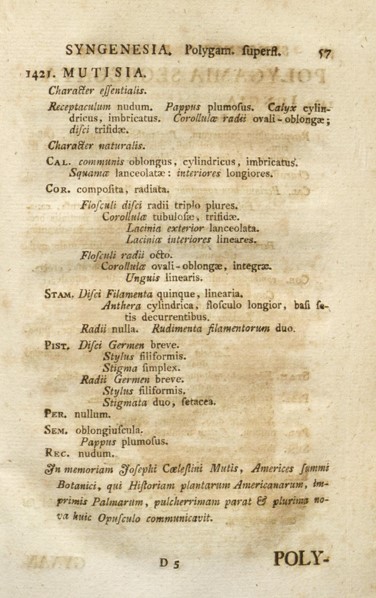 SYNGENESIA. Polygam. superfl. 57
1421. MUTISIA.
Character essentialis.
Receptaculum nudum. Pappus plumosus. Calyx cylin-
dricus, imbricatus. Corollulæ radii ovali-oblongæ;
disci trifidæ.
Character naturalis.
CAL. communis oblongus, cylindricus, imbricatus.
Squamæ lanceolatæ: interiores longiores.
COR. composita, radiata.
Flosculi disci radii triplo plures.
Corollulæ tubulosæ, trifidæ.
Lacinia exterior lanceolata.
Laciniæ interiores lineares.
Flosculi radii octo.
Corollulæ ovali-oblongæ, integræ.
Unguis linearis.
STAM. Disci Filamenta quinque, linearia.
Anthera cylindrica, flosculo longior, basi se-
tis decurrentibus.
Radii nulla. Rudimenta filamentorum duo.
PIST. Disci Germen breve.
Stylus filiformis.
Stigma simplex.
Radii Germen breve.
Stylus filiformis.
Stigmata duo, setacea.
PER. nullum.
SEM. oblongiuscula.
Pappus plumosus.
REC. nudum.
In memoriam Josephi Cœlestini Mutis, Americes summi
Botanici, qui Historiam plantarum Americanarum, im-
primis Palmarum, pulcherrimam parat & plurima no-
va huic Opusculo communicavit.
D 5 POLY-